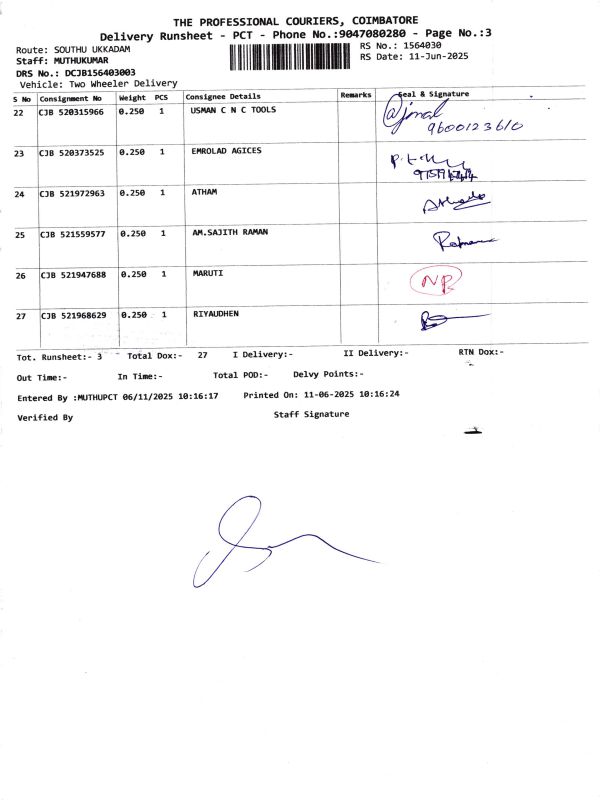 THE PROFESSIONAL COURIERS, COIMBATORE
Delivery Runsheet - PCT - Phone No.:9047080280 - Page No.:3
Route: SOUTHU UKKADAM
RS No.: 1564030
Staff: MUTHUKUMAR
RS Date: 11-Jun-2025
DRS No.: DCJB156403003
Vehicle: Two Wheeler Delivery
S No Consignment No Weight PCS Consignee Details Remarks Seal & Signature
22 CJB 520315966 0.250 1 USMAN C N C TOOLS
9600123610
23 CJB 520373525 0.250 1 EMROLAD AGICES
24 CJB 521972963 0.250 1 ATHAM
25 CJB 521559577 0.250 1 AM.SAJITH RAMAN
26 CJB 521947688 0.250 1 MARUTI
27 CJB 521968629 0.250 1 RIYAUDHEN
Tot. Runsheet:- 3 Total Dox:- 27 I Delivery:- II Delivery:- RTN Dox:-
Out Time:- In Time:- Total POD:- Delvy Points:-
Entered By :MUTHUPCT 06/11/2025 10:16:17 Printed On: 11-06-2025 10:16:24
Verified By Staff Signature